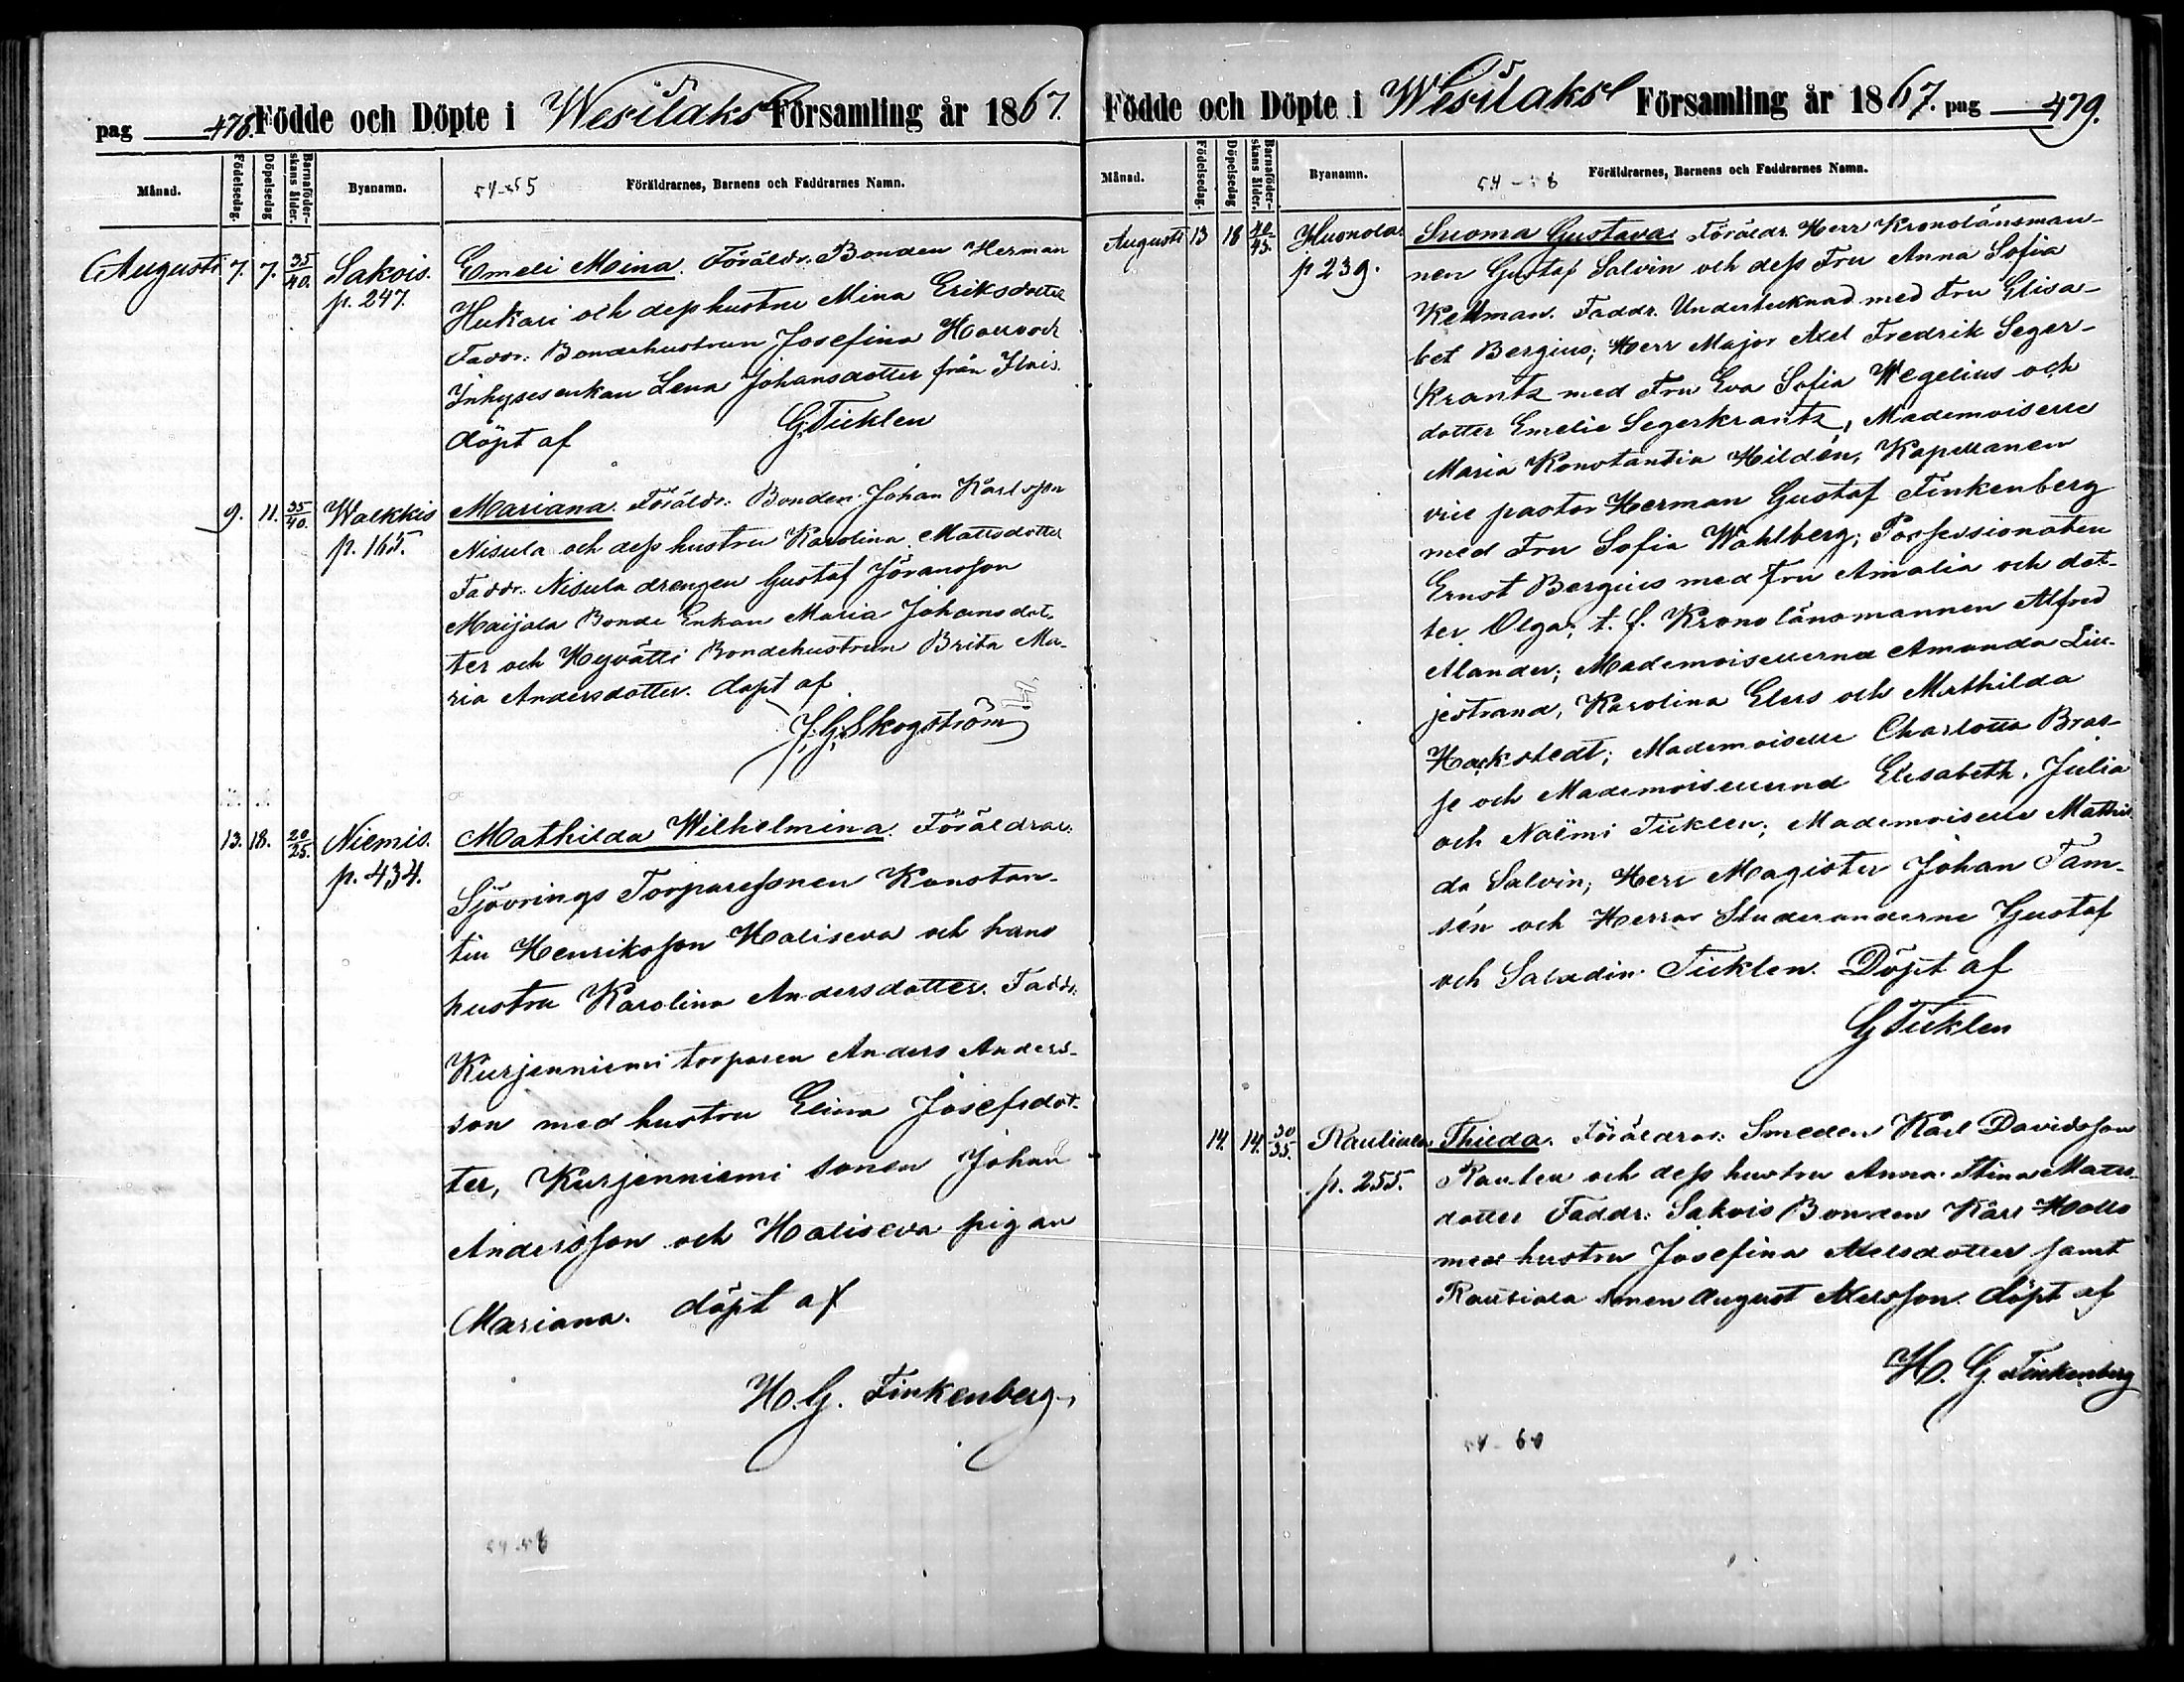 pag 478. Födde och Döpte i Wesilaks Församling år 1867.
Månad. Födelsedag. Döpelsedag Barnaföderskans ålder. Byanamn. 54-55 Föräldrarnes, Barnens och Faddrarnes Namn.
Augusti. 7. 7. 35/40. Sakois. p. 247. Emeli Mina. Föräldr. Bonden Herman
Hukari och dess hustru Mina Eriksdotter
Faddr: Bondehustrun Josefina och
Inhysesenkan Lena Johansdotter från
döpt af G. Ticklen
9. 11. 35/40. Walkkis p. 165. Mariana. Föräldr: Bonden Johan Karlsson
Nisula och dess hustru Karolina Mattsdotter
Faddr. Nisula drengen Gustaf Jöransson
Maijala Bonde Enkan Maria Johansdot-
ter och Hyvätti Bondehustrun Brita Ma-
ria Andersdotter. döpt af
J. G. Skogström
13. 18. 20/25. Niemis. p. 434. Mathilda Wilhelmina. Föräldrar:
Sjövrings Torparessonen Konstan-
tin Henriksson Haliseva och hans
hustru Karolina Andersdotter. Faddr:
Kurjenniemi torparen Anders Anders-
son med hustru Elina Josefsdot-
ter, Kurjenniemi sonen Johan
Andersson och Haliseva pigan
Mariana. döpt af
H. G. Finkenberg
54-58
Födde och Döpte i Wesilaks Församling år 1867. pag 479.
Månad. Födelsedag. Döpelsedag Barnaföderskans ålder. Byanamn. 54-58 Föräldrarnes, Barnens och Faddrarnes Namn.
Augusti 13 18 40/45. Huonola p 239. Suoma Gustava. Föräldr. Herr Kronolänsman-
nen Gustaf Salvin och dess Fru Anna Sofia
Kellman. Faddr. Undertecknad med Fru Elisa-
bet Bergius; Herr Major Axel Fredrik Seger-
krantz med Fru Eva Sofia Wegelius och
dotter Emelie Segerkrantz, Mademoiselle
Maria Konstantia Hildén, Kapellanen
vice pastor Herman Gustaf Finkenberg
med Fru Sofia Wahlberg; Possessionaten
Ernst Bergius med Fru Amalia och dot-
ter Olga; t. f. Kronolänsmannen Alfred
Alander; Mademoisellerna Amanda Lil-
jestrand, Karolina Elers och Mathilda
Hackstedt; Mademoiselle Charlotta Bras-
se och Mademoisellerna Elisabeth, Julia
och Naëmi Ticklen; Mademoiselle Mathil-
da Salvin, Herr Magister Johan Tam-
sén och Herrar Studeranderne Gustaf
och Saladin Ticklen. Döpt af
G Ticklen
14. 14. 30/35. Rautiala p. 255. Thilda. Föräldrar: Smeden Karl Davidsson
Rauten och dess hustru Anna Stina Matts-
dotter Faddr: Sakois Bonden Karl Hollo
med hustru Josefina Axelsdotter samt
Rautiala sonen August Axelsson. döpt af
H. G. Finkenberg
54-60